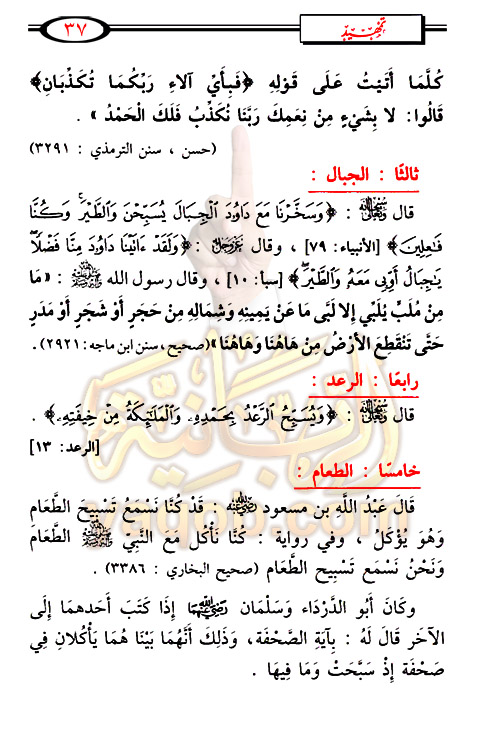 تمهيد
٣٧
كُلَّمَا أَتَيْتُ عَلَى قَوْلِهِ ﴿فَبِأَيِّ آلاءِ رَبِّكُمَا تُكَذِّبَانِ﴾
قَالُوا: لا بِشَيْءٍ مِنْ نِعَمِكَ رَبَّنَا نُكَذِّبُ فَلَكَ الْحَمْدُ» .
(حسن ، سنن الترمذي : ٣٢٩١)
ثالثًا : الجبال :
قال ﷻ : ﴿وَسَخَّرْنَا مَعَ دَاوُدَ الْجِبَالَ يُسَبِّحْنَ وَالطَّيْرَ ۚ وَكُنَّا
فَاعِلِينَ﴾ [الأنبياء: ٧٩] ، وقال ﷻ : ﴿وَلَقَدْ ءَاتَيْنَا دَاوُدَ مِنَّا فَضْلًا ۖ
يَاجِبَالُ أَوِّبِي مَعَهُ وَالطَّيْرَ ۖ﴾ [سبأ: ١٠] ، وقال رسول الله ﷺ : «مَا
مِنْ مُلَبٍّ يُلَبِّي إِلا لَبَّى مَا عَنْ يَمِينِهِ وَشِمَالِهِ مِنْ حَجَرٍ أَوْ شَجَرٍ أَوْ مَدَرٍ
حَتَّى تَنْقَطِعَ الأَرْضُ مِنْ هَاهُنَا وَهَاهُنَا» (صحيح، سنن ابن ماجه: ٢٩٢١).
رابعًا : الرعد :
قال ﷻ : ﴿وَيُسَبِّحُ الرَّعْدُ بِحَمْدِهِ وَالْمَلَائِكَةُ مِنْ خِيفَتِهِ﴾ .
[الرعد: ١٣]
خامسًا : الطعام :
قَالَ عَبْدُ اللَّهِ بن مسعود رضي الله عنه : قَدْ كُنَّا نَسْمَعُ تَسْبِيحَ الطَّعَامِ
وَهُوَ يُؤْكَلُ ، وفي رواية : كُنَّا نَأْكُلُ مَعَ النَّبِيِّ ﷺ الطَّعَامَ
وَنَحْنُ نَسْمَع تَسْبِيحَ الطَّعَامِ (صحيح البخاري : ٣٣٨٦) .
وَكَانَ أَبُو الدَّرْدَاء وَسَلْمَان رضي الله عنهما إِذَا كَتَبَ أَحدهمَا إِلَى
الآخَر قَالَ لَهُ : بِآيَةِ الصَّحْفَة، وَذَلِكَ أَنَّهُمَا بَيْنَا هُمَا يَأْكُلَانِ فِي
صَحْفَة إِذْ سَبَّحَتْ وَمَا فِيهَا .